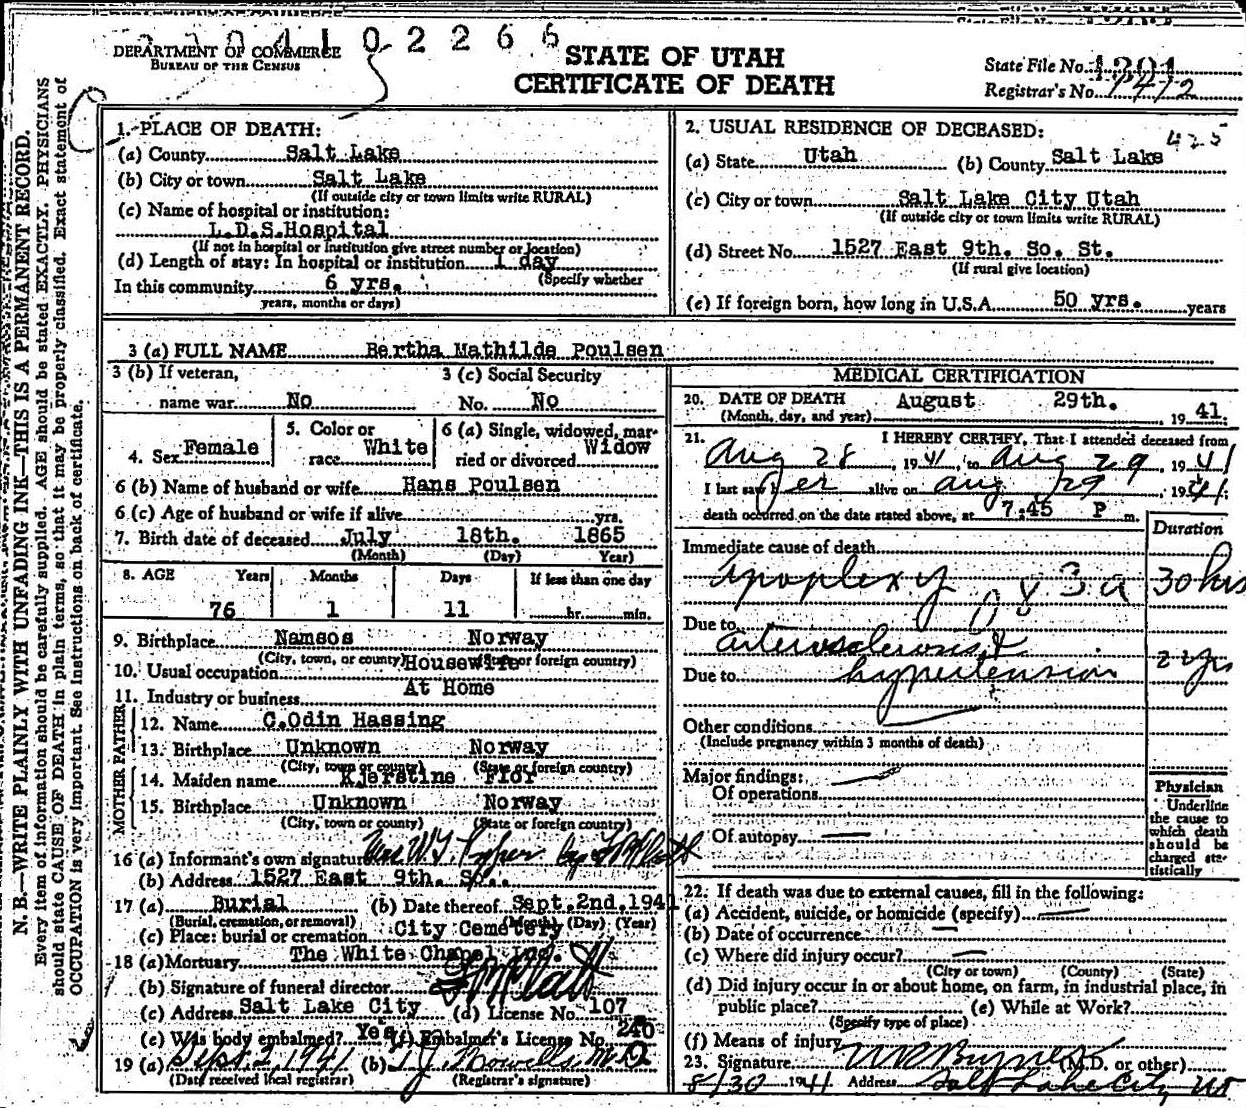 DEPARTMENT OF COMMERCE
BUREAU OF THE CENSUS
0 2 2 6 6
STATE OF UTAH
CERTIFICATE OF DEATH
State File No.
Registrar's No. 1412
N. B.—WRITE PLAINLY WITH UNFADING INK—THIS IS A PERMANENT RECORD.
Every item of information should be carefully supplied. AGE should be stated EXACTLY. PHYSICIANS
should state CAUSE OF DEATH in plain terms, so that it may be properly classified. Exact statement of
OCCUPATION is very important. See instructions on back of certificate.
1. PLACE OF DEATH:
(a) County Salt Lake
(b) City or town Salt Lake
(If outside city or town limits write RURAL)
(c) Name of hospital or institution:
L.D.S.Hospital
(If not in hospital or institution give street number or location)
(d) Length of stay: In hospital or institution 1 day
(Specify whether
In this community 6 yrs.
years, months or days)
2. USUAL RESIDENCE OF DECEASED:
425
(a) State Utah (b) County Salt Lake
(c) City or town Salt Lake City Utah
(If outside city or town limits write RURAL)
(d) Street No. 1527 East 9th. So. St.
(If rural give location)
(e) If foreign born, how long in U.S.A. 50 yrs. years
3 (a) FULL NAME Bertha Mathilde Poulsen
3 (b) If veteran,
name war No
3 (c) Social Security
No. No
4. Sex Female
5. Color or
race White
6 (a) Single, widowed, mar-
ried or divorced Widow
6 (b) Name of husband or wife Hans Poulsen
6 (c) Age of husband or wife if alive yrs.
7. Birth date of deceased July 18th. 1865
(Month) (Day) Year)
8. AGE Years Months Days If less than one day
76 1 11 hr. min.
9. Birthplace Namsos Norway
(City, town, or county) (State or foreign country)
10. Usual occupation Housewife
11. Industry or business At Home
FATHER
12. Name C.Odin Hassing
13. Birthplace Unknown Norway
(City, town or county) (State or foreign country)
MOTHER
14. Maiden name Kjerstine Flor
15. Birthplace Unknown Norway
(City, town or county) (State or foreign country)
16 (a) Informant's own signature
(b) Address 1527 East 9th. So.
17 (a) Burial (b) Date thereof Sept.2nd.1941
(Burial, cremation, or removal) (Month) (Day) (Year)
(c) Place: burial or cremation City Cemetery
18 (a) Mortuary The White Chapel Inc.
(b) Signature of funeral director
(c) Address Salt Lake City (d) License No. 107
(e) Was body embalmed? Yes (f) Embalmer's License No. 240
19 (a) Sept. 2, 1941 (b) M.D.
(Date received local registrar) (Registrar's signature)
MEDICAL CERTIFICATION
20. DATE OF DEATH August 29th. 19 41
(Month, day, and year)
21. I HEREBY CERTIFY, That I attended deceased from
Aug 28, 19 41, to Aug 29, 19 41
I last saw her alive on Aug 29, 19 41
death occurred on the date stated above, at 7:45 P m.
Duration
Immediate cause of death
apoplexy 83a 30 hrs
Due to
arteriosclerosis &
Due to hypertension yrs
Other conditions
(Include pregnancy within 3 months of death)
Major findings:
Of operations
Of autopsy
Physician
Underline
the cause to
which death
should be
charged sta-
tistically
22. If death was due to external causes, fill in the following:
(a) Accident, suicide, or homicide (specify)
(b) Date of occurrence
(c) Where did injury occur?
(City or town) (County) (State)
(d) Did injury occur in or about home, on farm, in industrial place, in
public place? (e) While at Work?
(Specify type of place)
(f) Means of injury
23. Signature (M.D. or other)
8/30 1941 Address Salt Lake City Ut